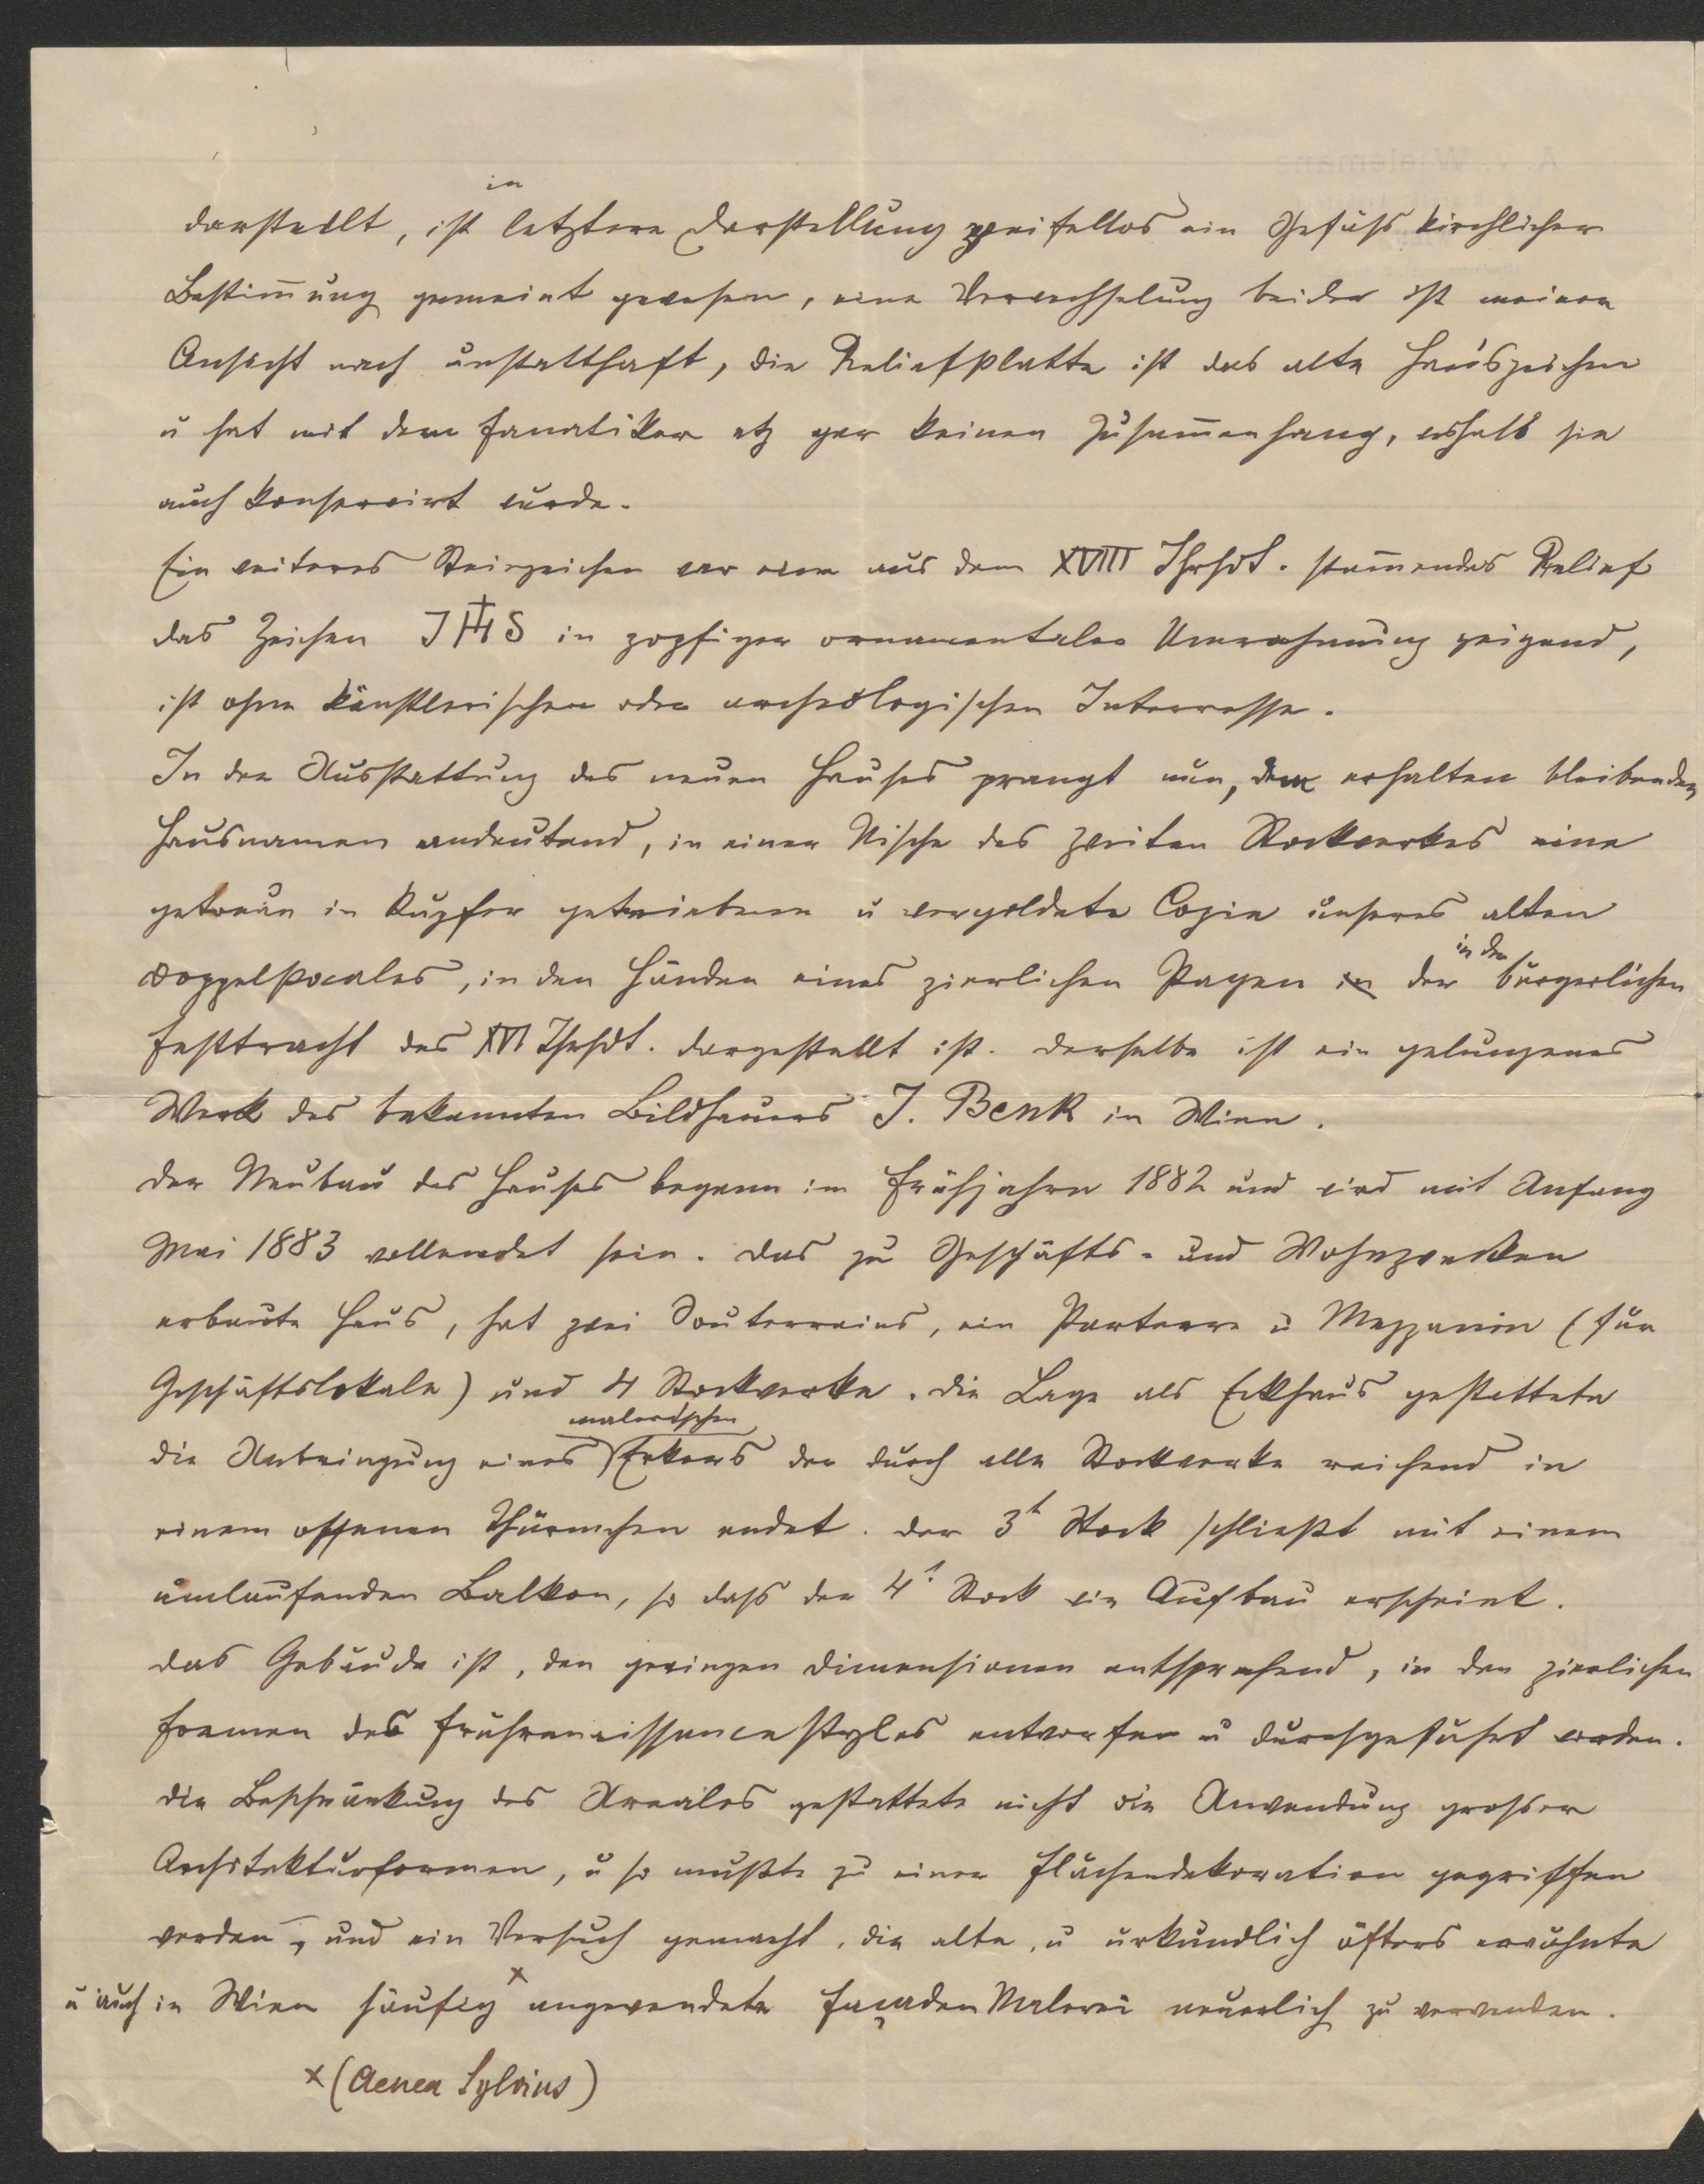 in
darstellt, ist letztere Darstellung zweifellos ein Gefäss kirchlicher
Bestim̄ung gemeint gewesen, eine Verwechselung beider ist meiner
Ansicht nach unstatthaft, die Reliefplatte ist das alte Hauszeichen
u hat mit dem Fanatiker etz gar keinen Zusam̄enhang, weshalb sie
auch konservirt wurde.
Ein weiteres Steinzeichen war eine aus dem XVIII Jhrhdt. stam̄endes Relief
das Zeichen JHS in zopfiger ornamentaler Umrahmung zeigend,
ist ohne künstlerischen oder archeologischen Interresse.
In der Ausstattung des neuen Hauses prangt nun, dem erhalten bleibenden
Hausnamen andeutend, in einer Nische des zweiten Stockwerkes eine
getreue in Kupfer getriebene u vergoldete Copie unseres alten
in der
Doppelpocales, in den Händen eines zierlichen Pagen in der bürgerlichen
Festtracht des XVI Jhrhdt. dargestellt ist. Derselbe ist ein gelungenes
Werk des bekannten Bildhauers J. Benk in Wien.
Der Neubau des Hauses begann im Frühjahre 1882 und wird mit Anfang
Mai 1883 vollendet sein. Das zu Geschäfts- und Wohnzwecken
erbaute Haus, hat zwei Souterrains, ein Parterre u Mezzanin (für
Geschäftslokale) und 4 Stockwerke. Die Lage als Eckhaus gestattete
malerischen
die Anbringung eines Erkers der durch alle Stockwerke reichend in
einem offenen Thürmchen endet. Der 3t Stock schließt mit einem
umlaufenden Balkon, so dass der 4t Stock ein Aufbau erscheint.
Das Gebäude ist, den geringen Dimensionen entsprechend, in den zierlichen
Formen des Frührenaissancestyles entworfen u durchgeführt worden.
Die Beschränkung des Areales gestattete nicht die Anwendung grosser
Architekturformen, u so mußte zu einer Flächendekoration gegriffen
werden, und ein Versuch gemacht, die alte, u urkundlich öfters erwähnte
u auch in Wien häufig x angewendete Façaden Malerei neuerlich zu verwenden.
x (Aenea Sylvius)